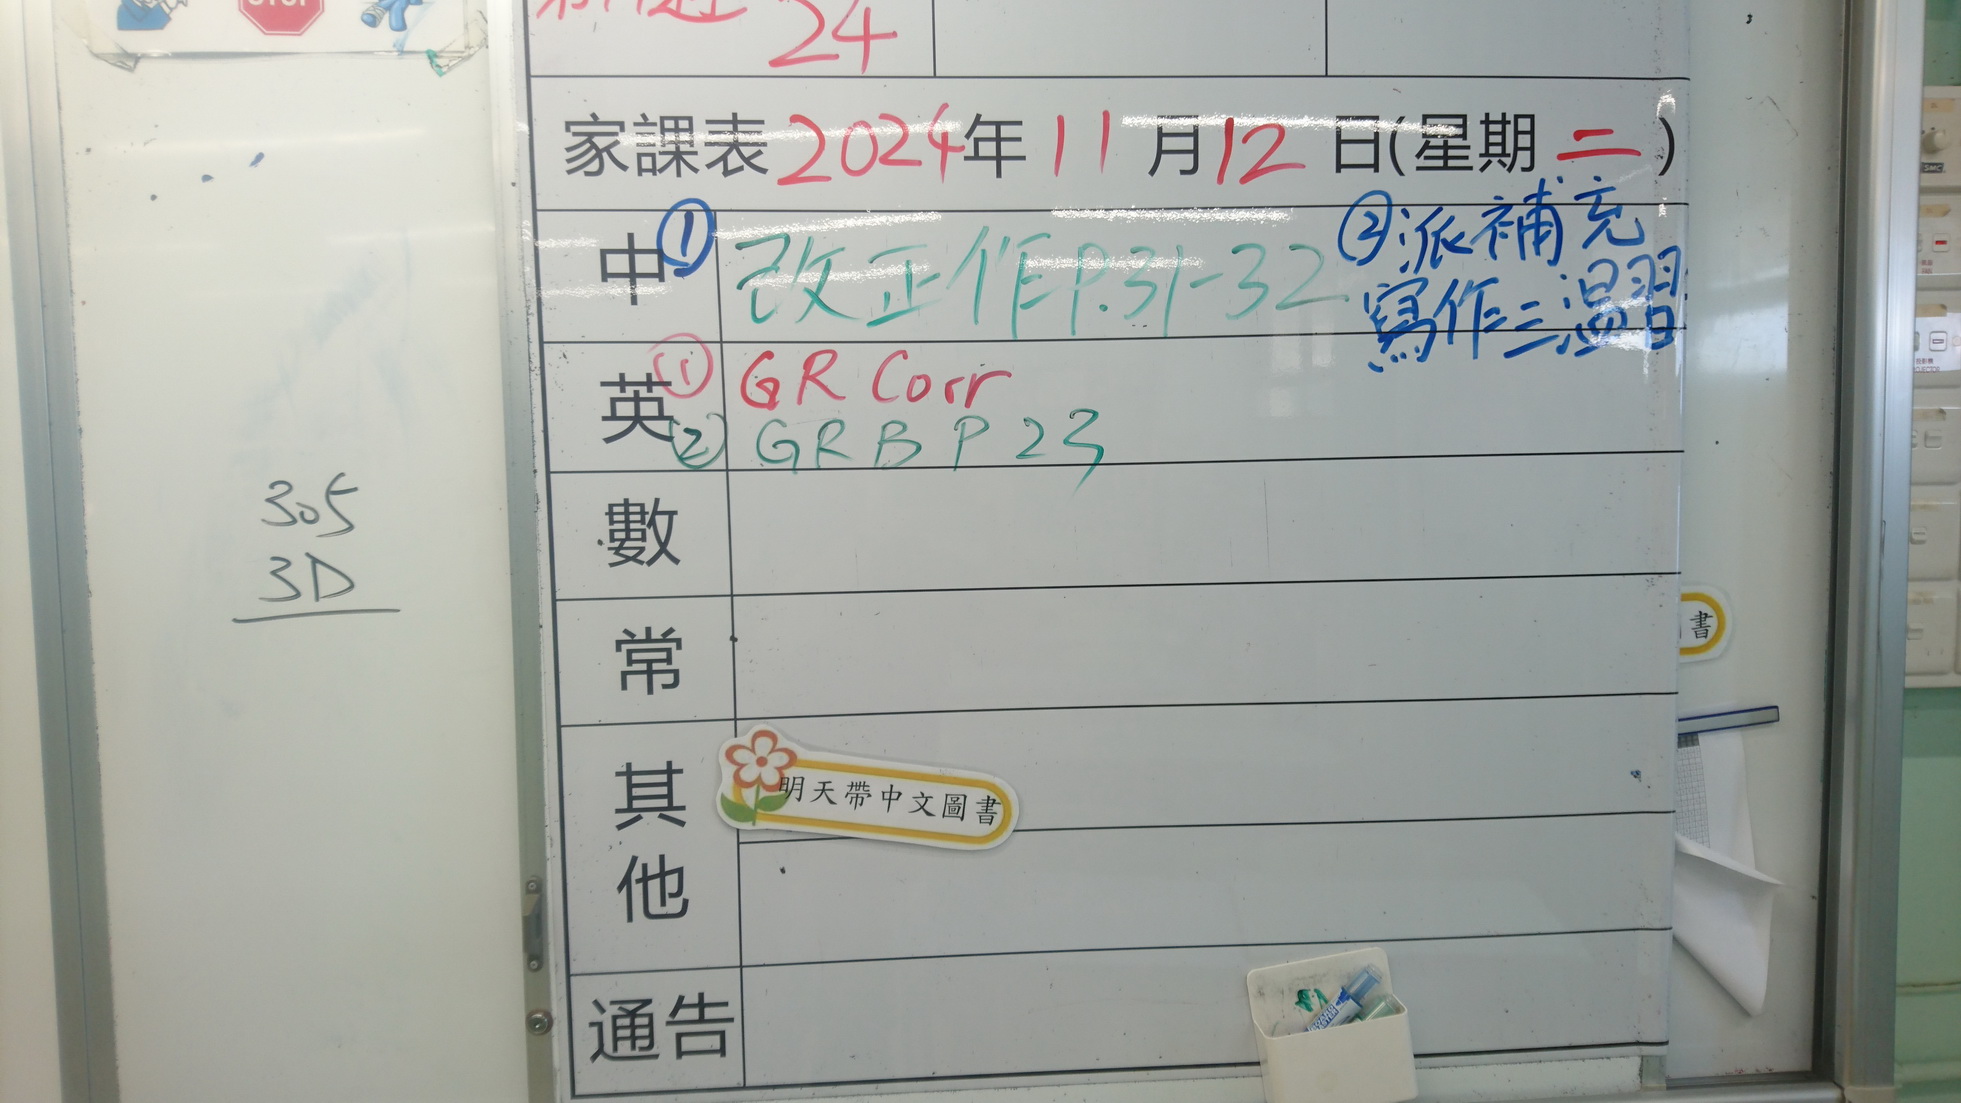 STOP
24
家課表2024年11月12日(星期二)
中① 改正作P.31-32 ②派補充
寫作三溫習
英① GR Corr
② GRB P23
數
常
其他
明天帶中文圖書
通告
305
3D
書